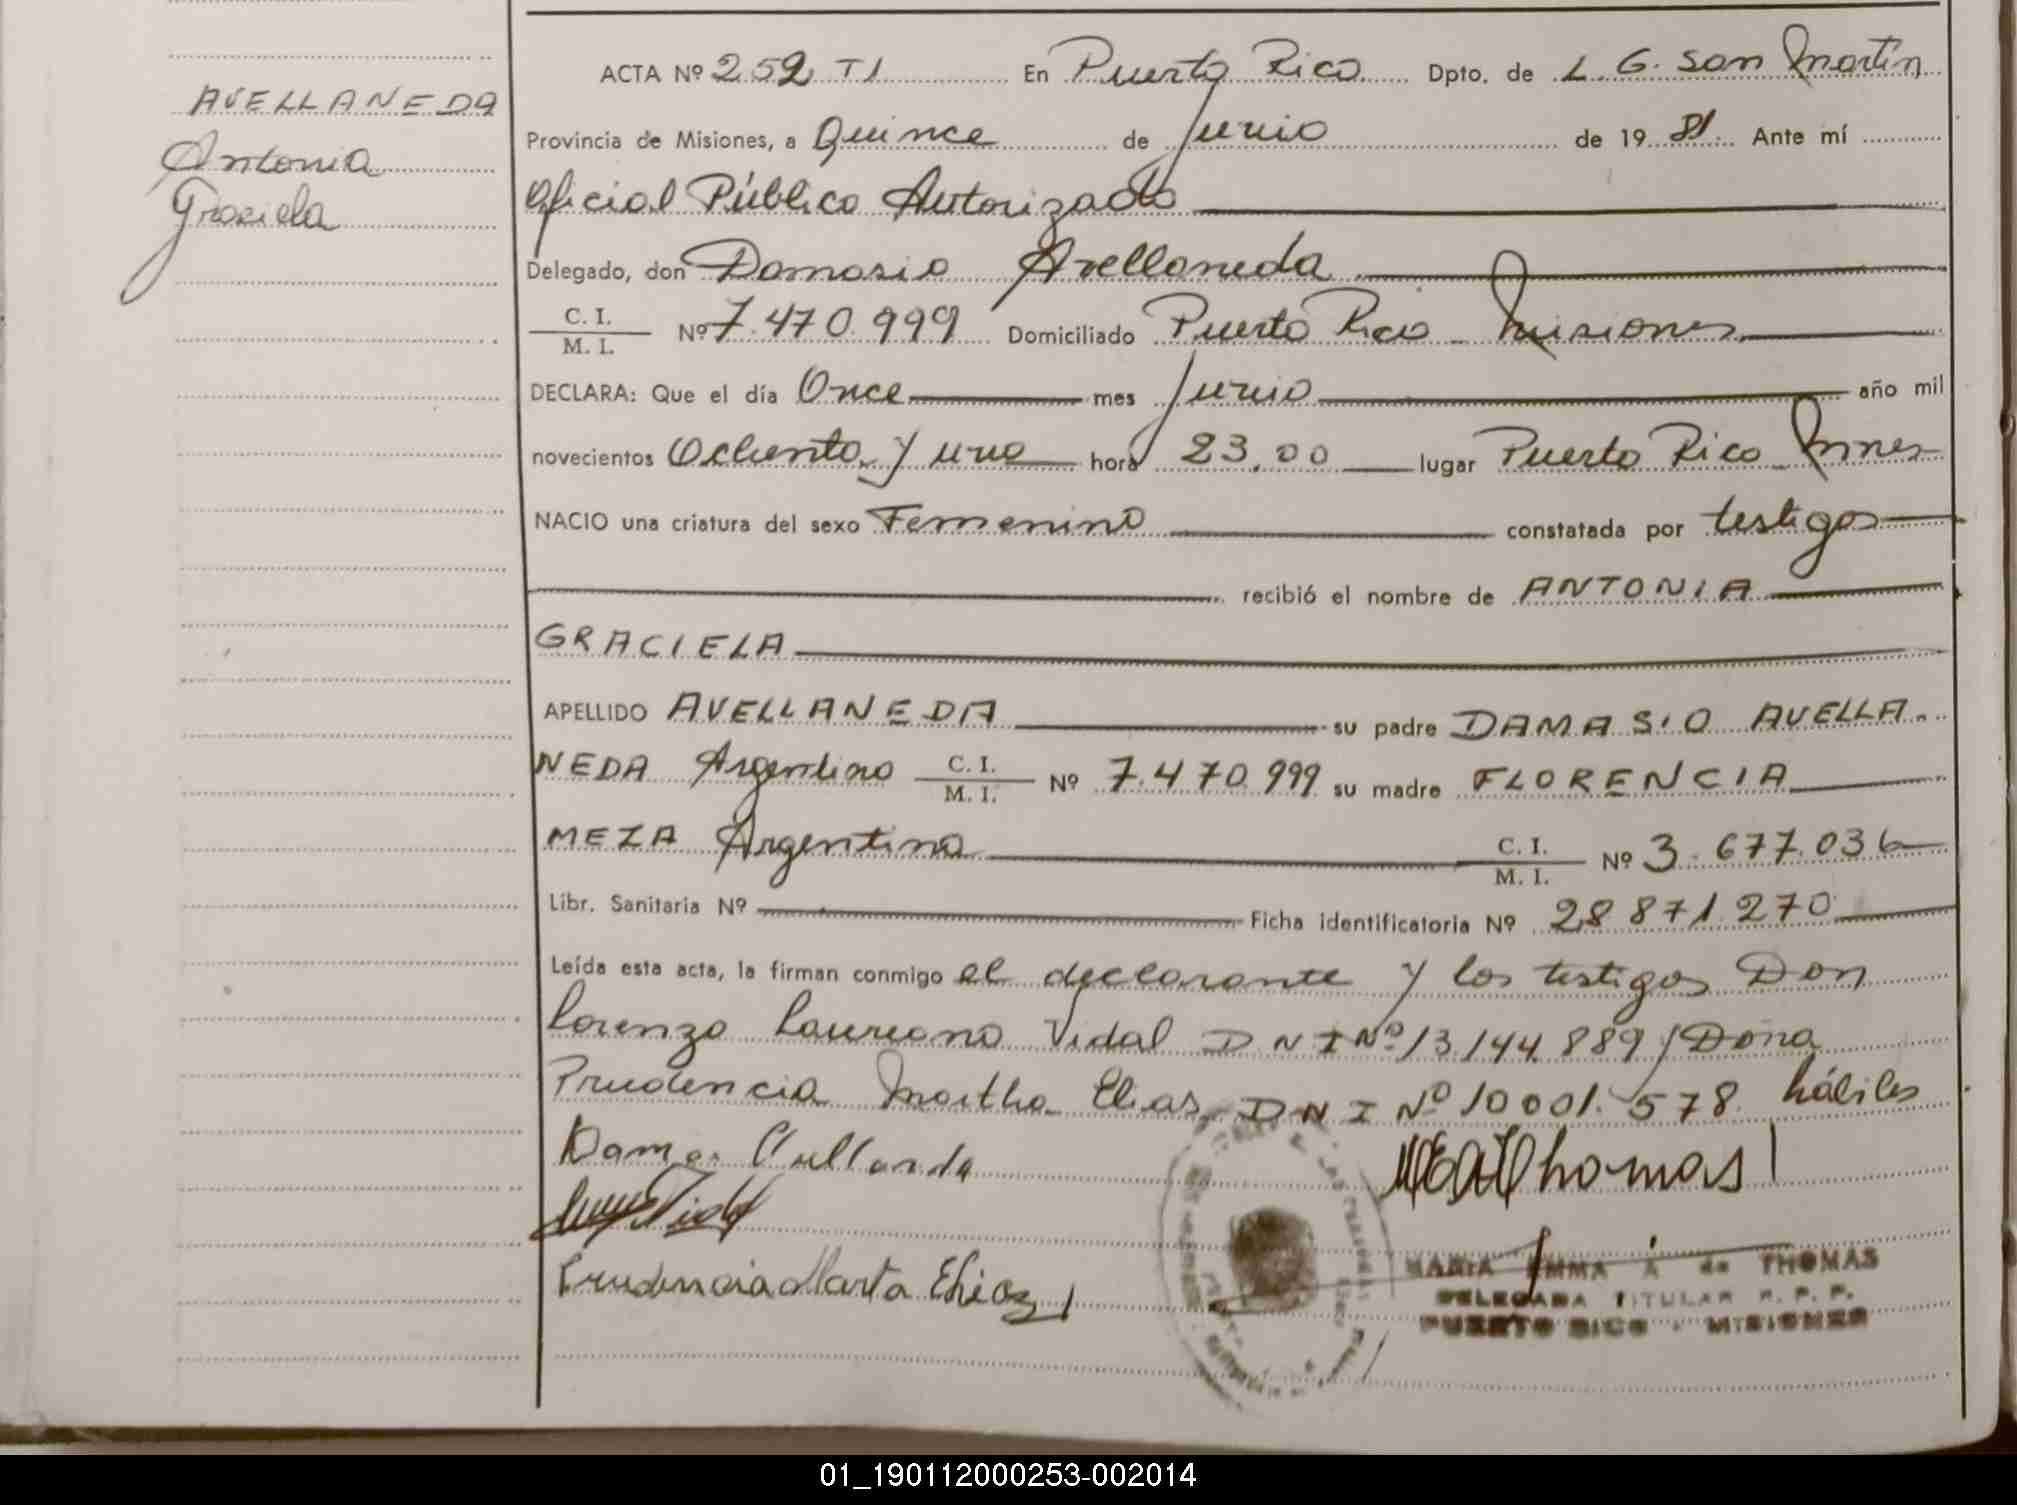 AVELLANEDA
Antonia
Graciela
ACTA Nº 252 T I En Puerto Rico Dpto. de L. G. San Martín
Provincia de Misiones, a Quince de Junio de 19 81 Ante mí
Oficial Público Autorizado
Delegado, don Damasio Avellaneda
C. I.
M. I. Nº 7.470.999 Domiciliado Puerto Rico - Misiones
DECLARA: Que el día Once mes Junio año mil
novecientos Ochenta y uno hora 23,00 lugar Puerto Rico Mnes
NACIO una criatura del sexo Femenino constatada por testigos
recibió el nombre de ANTONIA
GRACIELA
APELLIDO AVELLANEDA su padre DAMASIO AVELLA-
NEDA Argentino C. I. M. I. Nº 7.470.999 su madre FLORENCIA
MEZA Argentina C. I. M. I. Nº 3.677.036
Libr. Sanitaria Nº Ficha identificatoria Nº 28 871 270
Leída esta acta, la firman conmigo el declarante y los testigos Don
Lorenzo Laureano Vidal D N I Nº 13 144 889 / Dona
Prudencia Martha Elias D N I Nº 10 001.578 hábiles
Thomas
Prudencia Marta Elias
MARIA EMMA A de THOMAS
DELEGADA TITULAR R. P. P.
PUERTO RICO - MISIONES
01_190112000253-002014